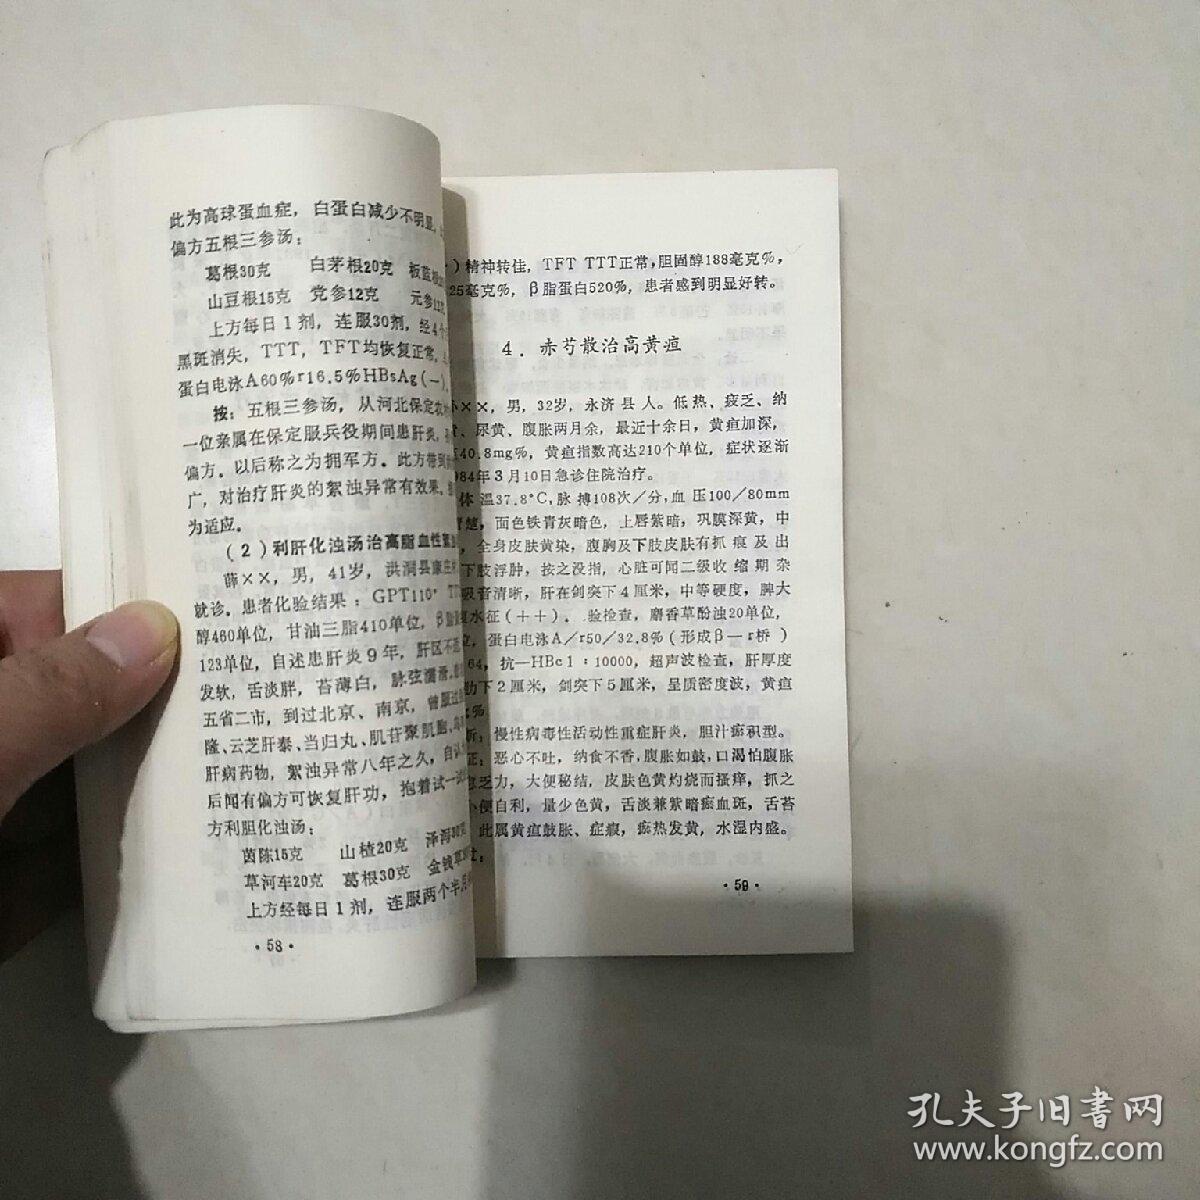 此为高球蛋血症，白蛋白减少不明显，
偏方五根三参汤：
葛根30克 白茅根20克 板蓝根
山豆根15克 党参12克 元参12克
上方每日1剂，连服30剂，经4个
黑斑消失，TTT，TFT均恢复正常，
蛋白电泳A60%r16.5%HBsAg(—)。
按：五根三参汤，从河北保定农村
一位亲属在保定服兵役期间患肝炎，
偏方。以后称之为拥军方。此方带到
广，对治疗肝炎的絮浊异常有效果。
为适应。
(2)利肝化浊汤治高脂血性絮
薛××，男，41岁，洪洞县康庄
就诊。患者化验结果：GPT110，TT
醇460单位，甘油三脂410单位，β脂蛋
123单位，自述患肝炎9年，肝区不适
发软，舌淡胖，苔薄白，脉弦濡滑。
五省二市，到过北京、南京，曾服过
隆、云芝肝泰、当归丸、肌苷聚肌胞、
肝病药物，絮浊异常八年之久，自认
后闻有偏方可恢复肝功，抱着试一试
方利胆化浊汤：
茵陈15克 山楂20克 泽泻30克
草河车20克 葛根30克 金钱草
上方经每日1剂，连服两个半月
·58·
)精神转佳，TFT TTT正常，胆固醇188毫克%，
25毫克%，β脂蛋白520%，患者感到明显好转。
4．赤芍散治高黄疸
××，男，32岁，永济县人。低热、疲乏、纳
、尿黄、腹胀两月余，最近十余日，黄疸加深，
40.8mg%，黄疸指数高达210个单位，症状逐渐
984年3月10日急诊住院治疗。
体温37.8°C，脉搏108次/分，血压100/80mm
楚，面色铁青灰暗色，上唇紫暗，巩膜深黄，中
，全身皮肤黄染，腹胸及下肢皮肤有抓痕及出
下肢浮肿，按之没指，心脏可闻二级收缩期杂
吸音清晰，肝在剑突下4厘米，中等硬度，脾大
水征(++)。验检查，麝香草酚浊20单位，
位，蛋白电泳A/r50/32.8%(形成β—r桥)
64，抗—HBc1：10000，超声波检查，肝厚度
肋下2厘米，剑突下5厘米，呈质密度波，黄疸
%
断：慢性病毒性活动性重症肝炎，胆汁瘀积型。
证：恶心不吐，纳食不香，腹胀如鼓，口渴怕腹胀
乏力，大便秘结，皮肤色黄灼烧而搔痒，抓之
小便自利，量少色黄，舌淡兼紫暗瘀血斑，舌苔
，此属黄疸鼓胀、症瘕，瘀热发黄，水湿内盛。
·59·
孔夫子旧书网
www.kongfz.com